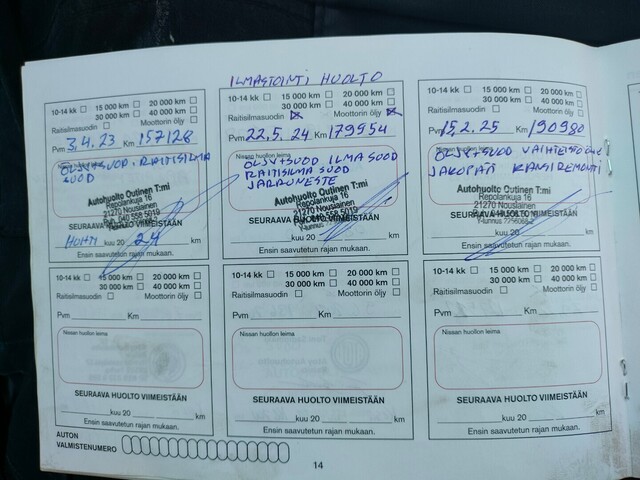 ILMASTOINTI HUOLTO
10-14 kk 15 000 km 20 000 km
30 000 km 40 000 km
Raitisilmasuodin Moottorin öljy
Pvm 3.4.23 Km 157128
ÖLJY+SUOD. RAITISILMA
SUOD
Autohuolto Outinen T:mi
Repolankuja 16
21270 Nousiainen
SEURAAVA HUOLTO VIIMEISTÄÄN
HUHTI kuu 20 24 km
Ensin saavutetun rajan mukaan.
10-14 kk 15 000 km 20 000 km
30 000 km 40 000 km
Raitisilmasuodin Moottorin öljy
Pvm 22.5.24 Km 179954
Nissan huollon leima
ÖLJY+SUOD ILMA SUOD
RAITISILMA SUOD
JARRUNESTE
Autohuolto Outinen T:mi
Repolankuja 16
21270 Nousiainen
SEURAAVA HUOLTO VIIMEISTÄÄN
kuu 20 km
Ensin saavutetun rajan mukaan.
10-14 kk 15 000 km 20 000 km
30 000 km 40 000 km
Raitisilmasuodin Moottorin öljy
Pvm 15.2.25 Km 190980
Nissan huollon leima
ÖLJY+SUOD
JAKOPÄÄ KANSIREMONTTI
Autohuolto Outinen T:mi
Repolankuja 16
21270 Nousiainen
SEURAAVA HUOLTO VIIMEISTÄÄN
kuu 20 km
Ensin saavutetun rajan mukaan.
10-14 kk 15 000 km 20 000 km
30 000 km 40 000 km
Raitisilmasuodin Moottorin öljy
Pvm Km
Nissan huollon leima
SEURAAVA HUOLTO VIIMEISTÄÄN
kuu 20 km
Ensin saavutetun rajan mukaan.
10-14 kk 15 000 km 20 000 km
30 000 km 40 000 km
Raitisilmasuodin Moottorin öljy
Pvm Km
Nissan huollon leima
SEURAAVA HUOLTO VIIMEISTÄÄN
kuu 20 km
Ensin saavutetun rajan mukaan.
10-14 kk 15 000 km 20 000 km
30 000 km 40 000 km
Raitisilmasuodin Moottorin öljy
Pvm Km
Nissan huollon leima
SEURAAVA HUOLTO VIIMEISTÄÄN
kuu 20 km
Ensin saavutetun rajan mukaan.
AUTON
VALMISTENUMERO
14